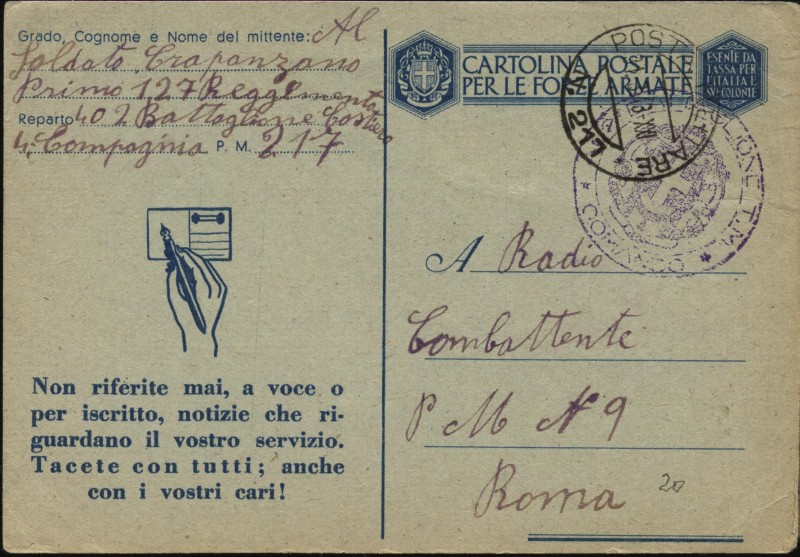 Grado, Cognome e Nome del mittente: Al
Soldato Crapanzano
Primo 127 Reggemento
Reparto 402 Battaglione Costiero
4ª Compagnia P. M. 217
Non riferite mai, a voce o
per iscritto, notizie che ri-
guardano il vostro servizio.
Tacete con tutti; anche
con i vostri cari!
CARTOLINA POSTALE
PER LE FORZE ARMATE
ESENTE DA
TASSA PER
L'ITALIA E
SUE COLONIE
POSTA
217
COMANDO
A Radio
Combattente
P M N 9
Roma
20